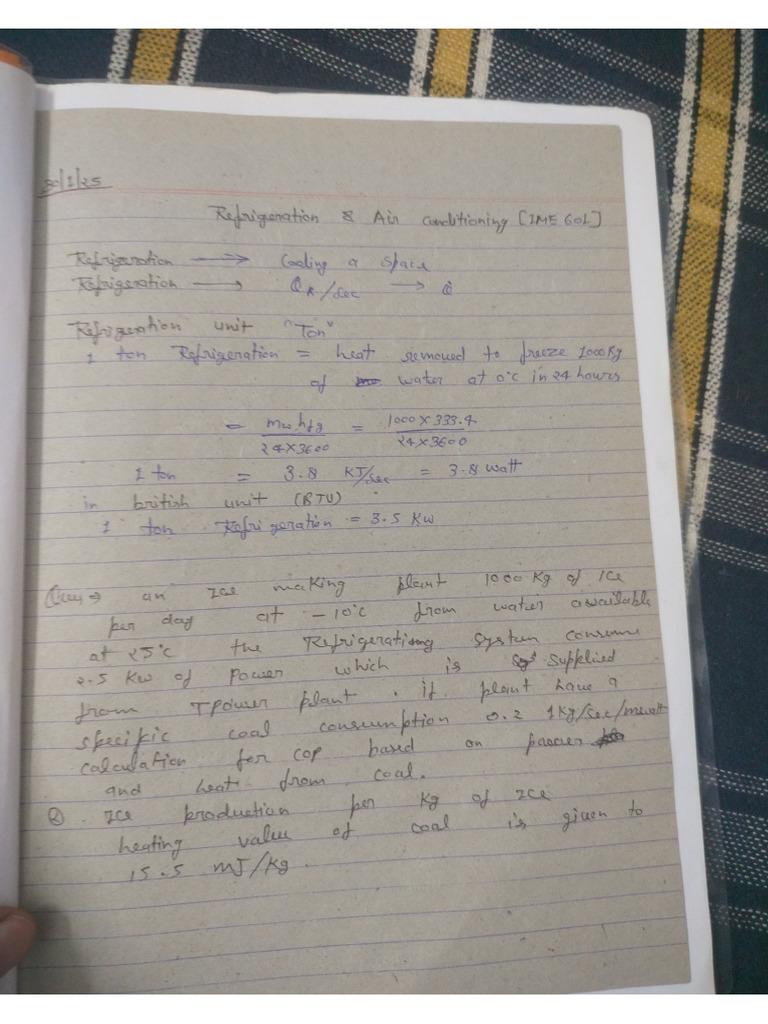 30/1/25
Refrigeration & Air conditioning [IME 601]
Refrigeration → Cooling a space
Refrigeration → QR/sec → Q̇
Refrigeration unit "Ton"
1 ton Refrigeration = heat removed to freeze 1000 Kg
of water at 0°C in 24 hours
= mw hfg / 24×3600 = 1000×333.4 / 24×3600
1 ton = 3.8 KJ/sec = 3.8 watt
in british unit (BTU)
1 ton Refrigeration = 3.5 Kw
Ques → an Ice making plant 1000 Kg of Ice
per day at -10°C from water available
at 25°C the Refrigerating system consume
2.5 Kw of Power which is supplied
from TPower plant. if plant have a
specific coal consumption 0.2 1Kg/sec/mwatt
calculation for COP based on power
and heat from coal.
② Ice production per Kg of Ice
heating value of coal is given to
15.5 MJ/Kg.